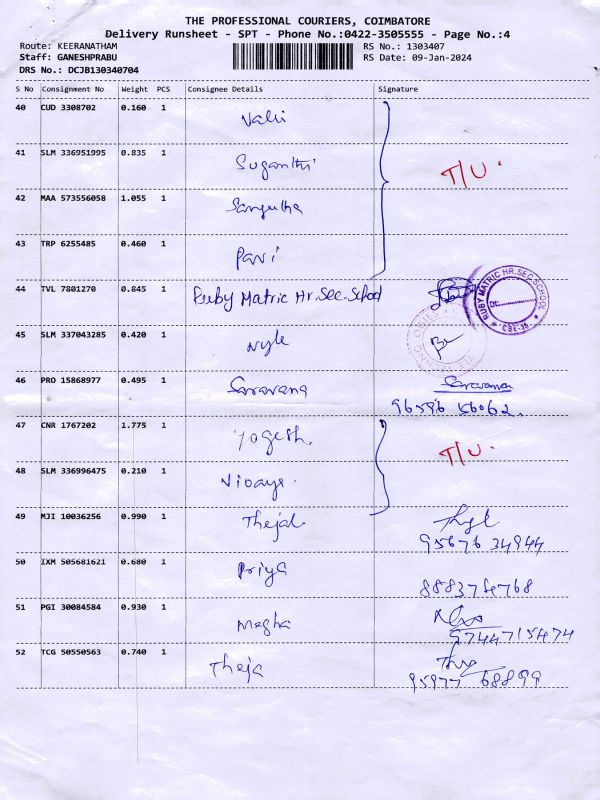 THE PROFESSIONAL COURIERS, COIMBATORE
Delivery Runsheet - SPT - Phone No.:0422-3505555 - Page No.:4
Route: KEERANATHAM RS No.: 1303407
Staff: GANESHPRABU RS Date: 09-Jan-2024
DRS No.: DCJB130340704
S No Consignment No Weight PCS Consignee Details Signature
40 CUD 3308702 0.160 1 Valli
41 SLM 336951995 0.835 1 Suganthi T/U.
42 MAA 573556058 1.055 1 Sangutha
43 TRP 6255485 0.460 1 Pavi
44 TVL 7801270 0.845 1 Ruby Matric Hr.Sec.School RUBY MATRIC HR.SEC.SCHOOL CBE-35
45 SLM 337043285 0.420 1
46 PRO 15868977 0.495 1 Saravana Saravana
96596 56062.
47 CNR 1767202 1.775 1 Yogesh. T/U.
48 SLM 336996475 0.210 1
49 MJI 10036256 0.990 1 Thejal
95676 34944
50 IXM 505681621 0.680 1 Priya
51 PGI 30084584 0.930 1 Megha
9744715474
52 TCG 50550563 0.740 1 Theja
95977 68899